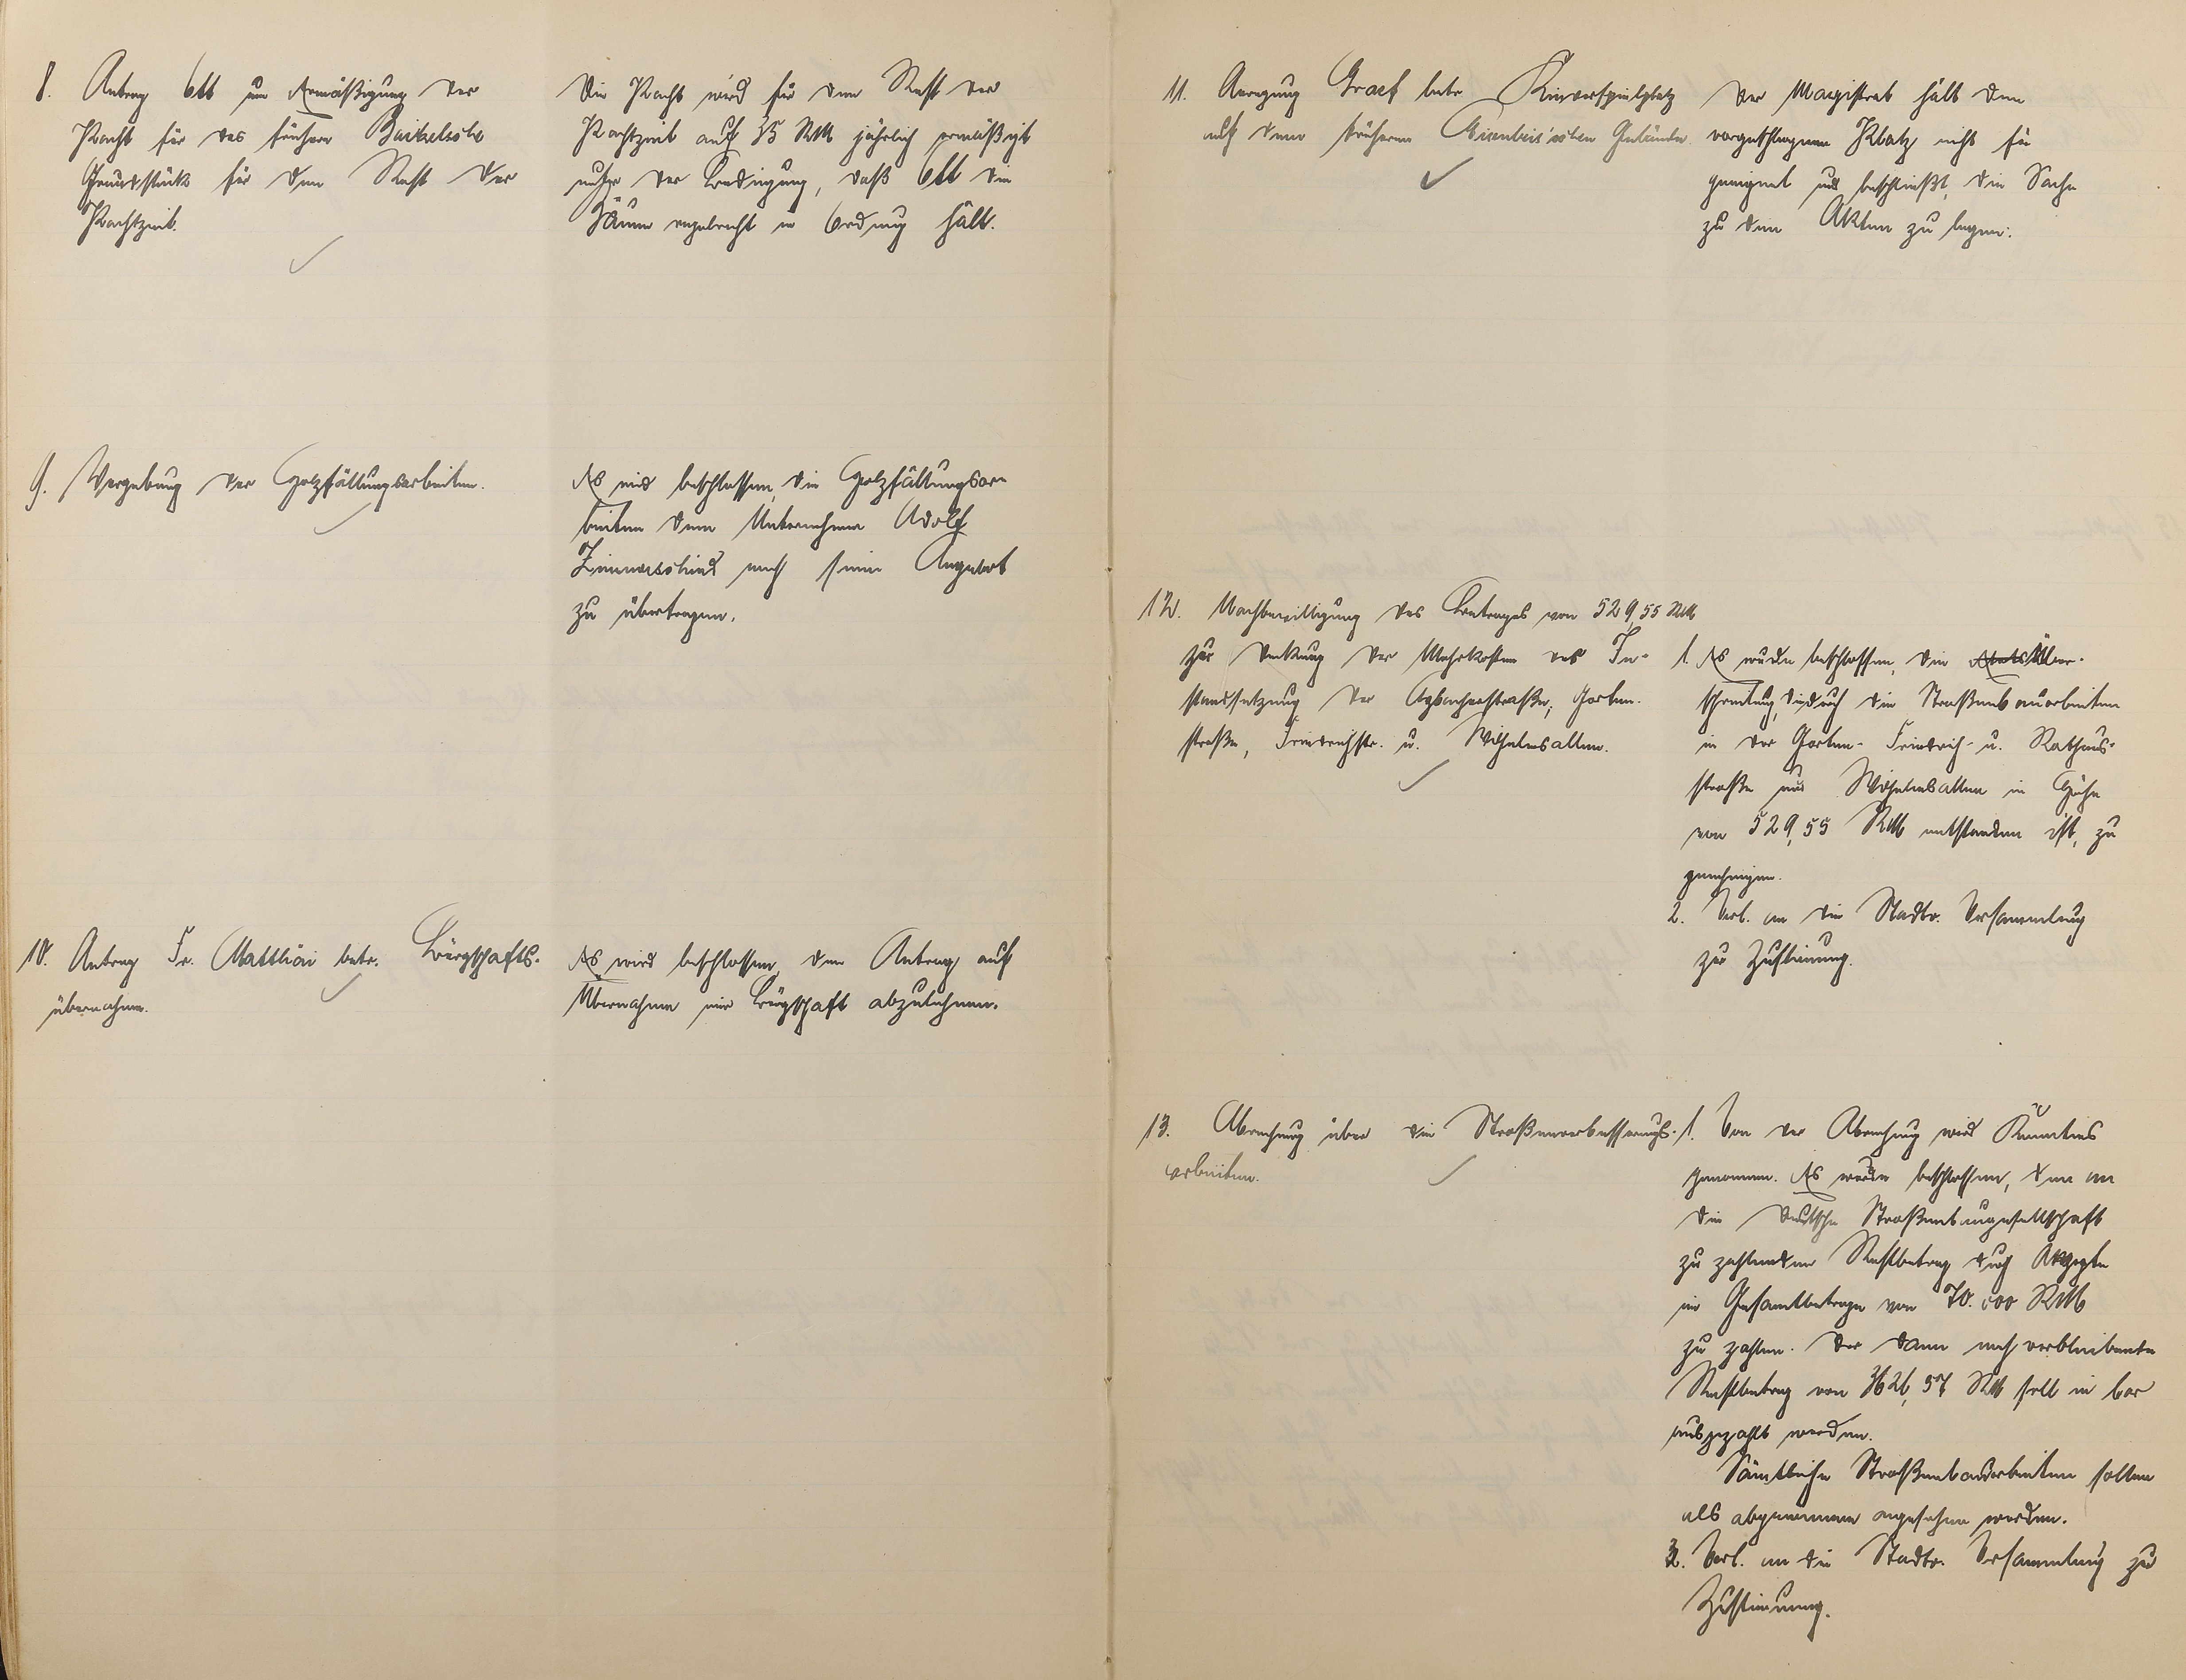 8. Antrag Ott um Ermäßigung der
Pacht für das frühere
Grundstück für den Rest der
Pachtzeit.
Die Pacht wird für den Rest der
Pachtzeit auf 35 RM jährlich ermäßigt
unter der Bedingung, daß Ott die
Zäune regelrecht in Ordnung hält.
9. Vergebung der Holzfällungsarbeiten.
Es wird beschlossen, die Holzfällungsar-
beiten dem Unternehmer Adolf
nach seinem Angebot
zu übertragen.
10. Antrag Fr. Matthäi betr. Bürgschafts-
übernahme.
Es wird beschlossen, den Antrag auf
Übernahme einer Bürgschaft abzulehnen.
11. Anregung Graef betr. Kinderspielplatz
auf dem früheren Gelände
Der Magistrat hält den
vorgeschlagenen Platz nicht für
geeignet und beschließt, die Sache
zu den Akten zu legen.
12. Nachbewilligung des Betrages von 529,55 RM
zur Deckung der Mehrkosten der In-
standsetzung der Garten-
straße, Friedrichstr. u. Wilhelmsallee.
1. Es wurde beschlossen, die Über-
schreitung, die durch die Straßenbauarbeiten
in der Garten- Friedrich- u. Rathaus-
straße und Wilhelmsallee in Höhe
von 529,55 RM entstanden ist, zu
genehmigen.
2. Vorl. an die Stadtv. Versammlung
zur Zustimmung.
13. Abrechnung über die Straßenverbesserungs-
arbeiten.
1. Von der Abrechnung wird Kenntnis
genommen. Es wurde beschlossen, den an
die Deutsche Straßenbaugesellschaft
zu zahlenden Restbetrag durch Akzepte
im Gesamtbetrage von 70.000 RM
zu zahlen. Der dann noch verbleibende
Restbetrag von 3626,57 RM soll in bar
ausgezahlt werden.
Sämtliche Straßenbauarbeiten sollen
als abgenommen angesehen werden.
2. Vorl. an die Stadtv. Versammlung zur
Zustimmung.